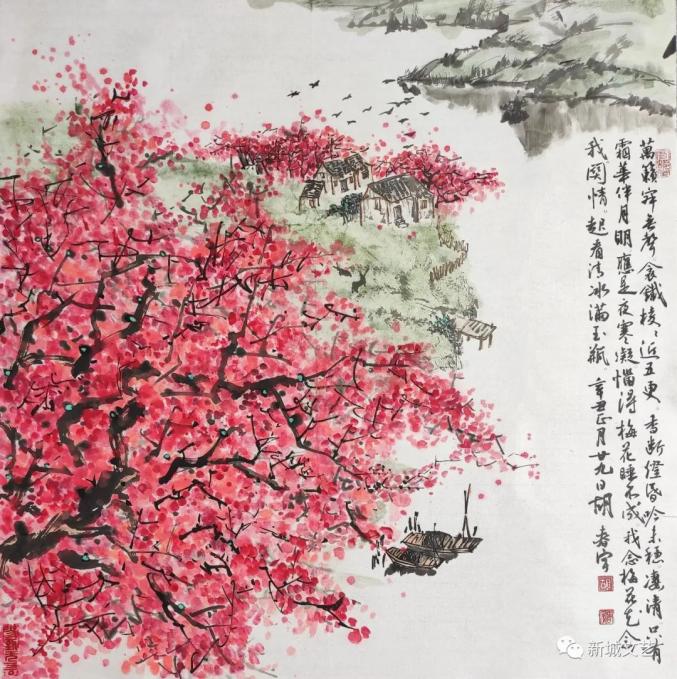 萬籟寂無聲衾鐵棱棱近五更香断燈昏吟未穩凄清只有
霜華伴月明應是夜寒凝惱得梅花睡不成我念梅花花念
我関情起看清冰滿玉瓶辛丑正月廿九日胡春
新城文艺